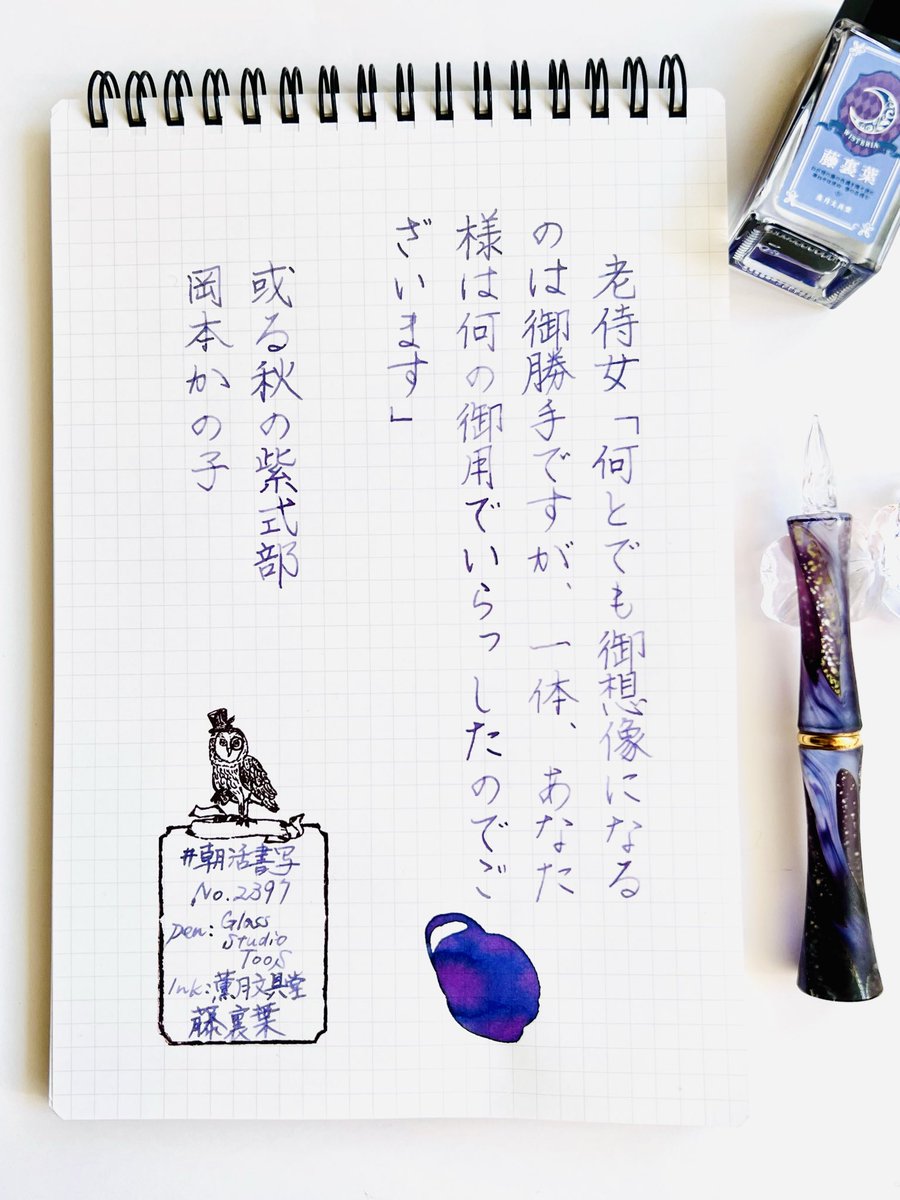 老侍女「何とでも御想像になる
のは御勝手ですが、一体、あなた
様は何の御用でいらっしたのでご
ざいます」
或る秋の紫式部
岡本かの子
#朝活書写
No.2397
pen: Glass
Studio
TooS
Ink:薫月文具堂
藤裏葉
WISTERIA
藤裏葉
薫月文具堂